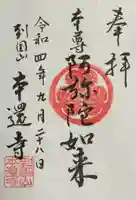 奉拝
本尊
阿弥陀如来
令和四年九月二十八日
到圓山
本還寺